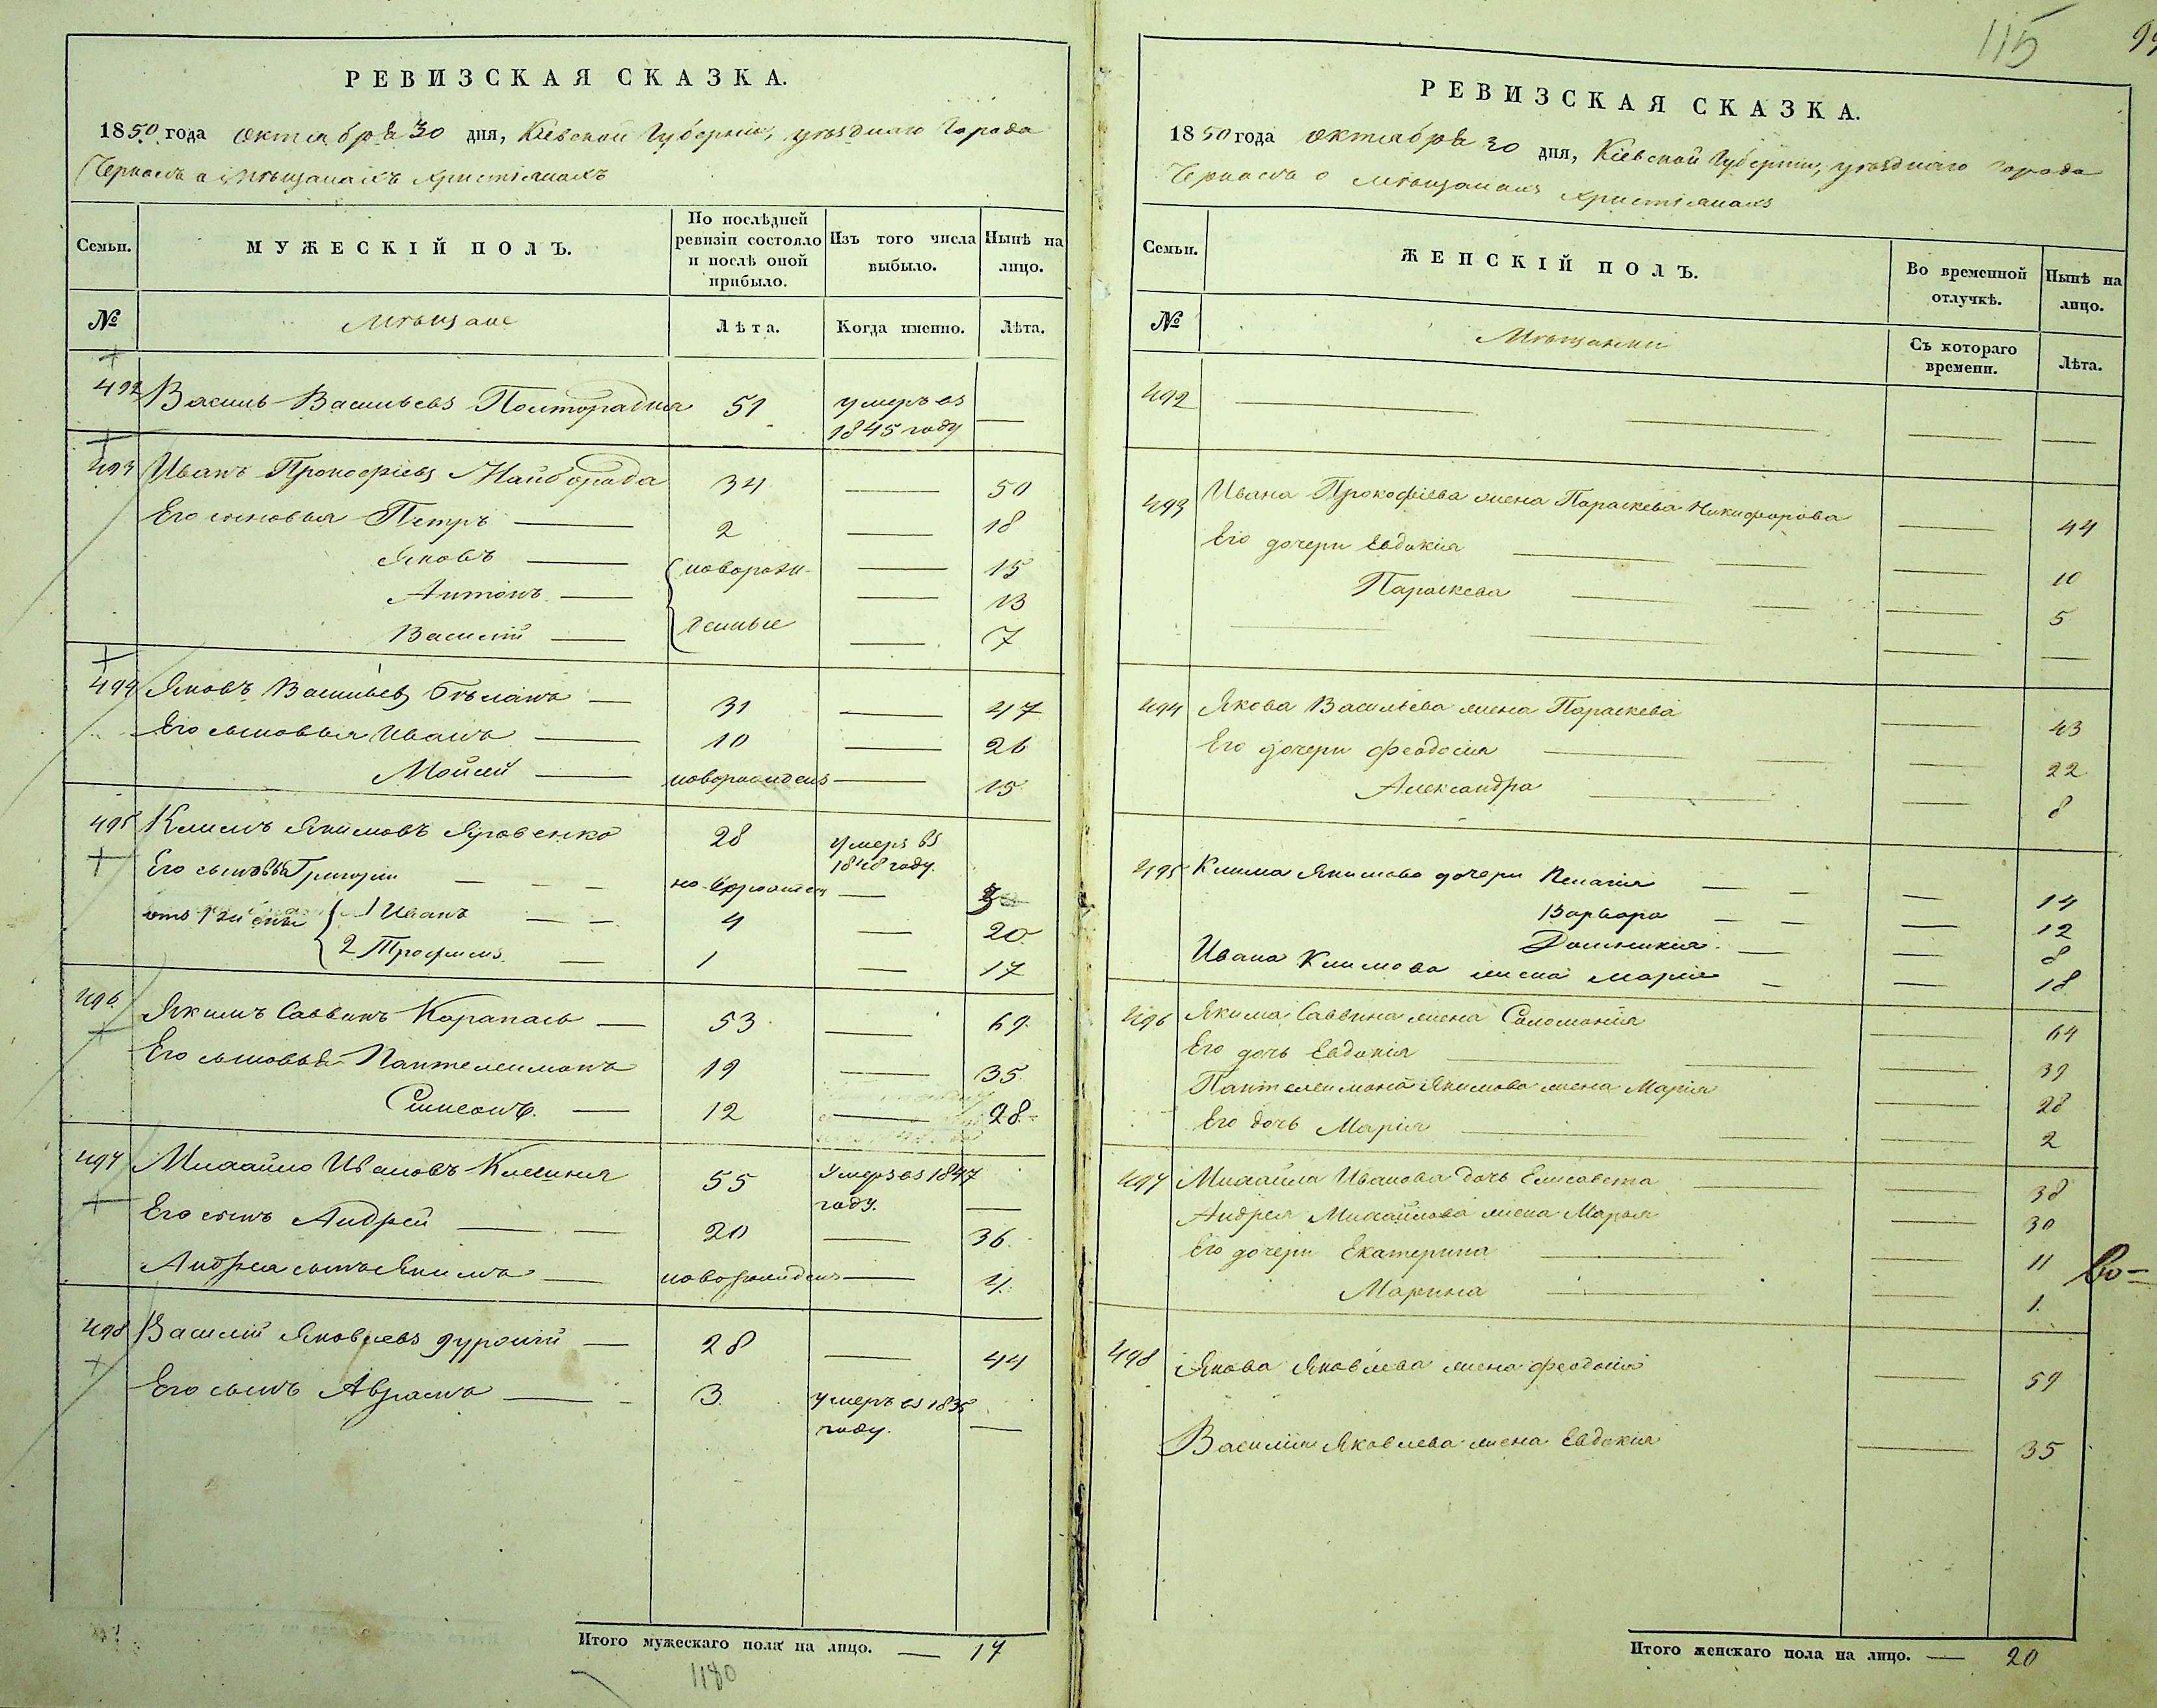 115
РЕВИЗСКАЯ СКАЗКА.
1850 года октября 30 дня, Кіевской Губерніи, уѣзднаго Города
Черкасъ о мѣщанахъ христіанахъ
Семьи.
МУЖЕСКІЙ ПОЛЪ.
По послѣдней ревизіи состояло и послѣ оной прибыло.
Изъ того числа выбыло.
Нынѣ на лицо.
№
Мѣщане
Лѣта.
Когда именно.
Лѣта.
492 Василь Васильевъ 51 умеръ въ 1845 году —
493 Иванъ Прокофіевъ Майборода 34 — 50
Его сыновья Петръ — 2 — 18
Яковъ — новорож- — 15
Антонъ — — 13
Василій — денные — 7
494 Яковъ Васильевъ Бѣланъ — 31 — 47
Его сыновья Иванъ — 10 — 26
Мойсей — новорожденъ — 15
495 Климъ Якимовъ Яровенко 28 умеръ въ 1848 году.
Его сыновья Григорій — — — —
отъ 1й жены 1 Иванъ — — 4 — 20
2 Трофимъ — 1 — 17
496 Якимъ Саввинъ Карапась — 53 — 69
Его сыновья Пантелеимонъ 19 — 35
Симеонъ. — 12 — 28
497 Михайло Ивановъ Клешня 55 Умеръ въ 1847 году. —
Его сынъ Андрей — — 20 — 36
Андрея сынъ Якимъ — новорожденъ — 4
498 Василій Яковлевъ — 28 — 44
Его сынъ Абрамъ — 3 умеръ въ 1835 году. —
Итого мужескаго пола на лицо. — 17
1180
РЕВИЗСКАЯ СКАЗКА.
1850 года октября 30 дня, Кіевской Губерніи, уѣзднаго Города
Черкасъ о мѣщанахъ христіанахъ
Семьи.
ЖЕНСКІЙ ПОЛЪ.
Во временной отлучкѣ.
Нынѣ на лицо.
№
Мѣщанки
Съ котораго времени.
Лѣта.
492 — — — —
493 Ивана Прокофіева жена Параскева Никифорова — 44
Его дочери Евдокія — — — 10
Параскева — — — 5
— — — —
494 Якова Васильева жена Параскева — 43
Его дочери Феодосія — — — 22
Александра — — 8
495 Клима Якимова дочери Пелагія — — — 14
Варвара — — — 12
Домникія — — 8
Ивана Климова жена Марія — — 18
496 Якима Саввина жена Соломонія — 64
Его дочь Евдокія — — — 39
Пантелеимона Якимова жена Марія — 28
Его дочь Марія — — — 2
497 Михайла Иванова дочь Елисавета — — 38
Андрея Михайлова жена Марья — 30
Его дочери Екатерина — — 11
Марина — — 1.
498 Якова Яковлева жена Феодосія — 59
Василія Яковлева жена Евдокія — 35
Итого женскаго пола на лицо. — 20